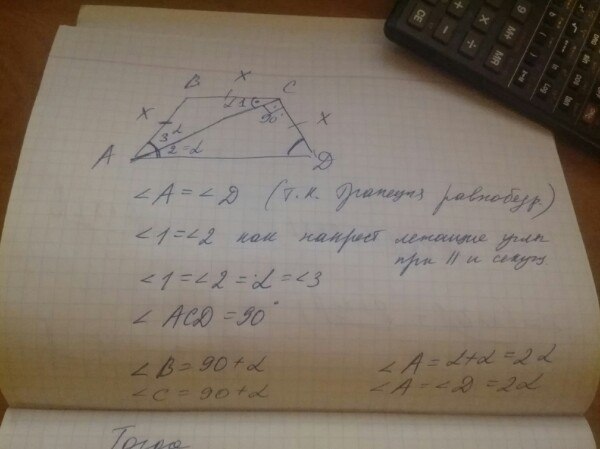 x
B C
x ∠1 90° x
3 α
2=α
A D
∠A=∠D (т.к. Трапеция равнобедр.)
∠1=∠2 как накрест лежащие углы
при || и секущ
∠1=∠2=α=∠3
∠ACD=90°
∠B=90+α
∠C=90+α
∠A=α+α=2α
∠A=∠D=2α
Тогда
CE
MR